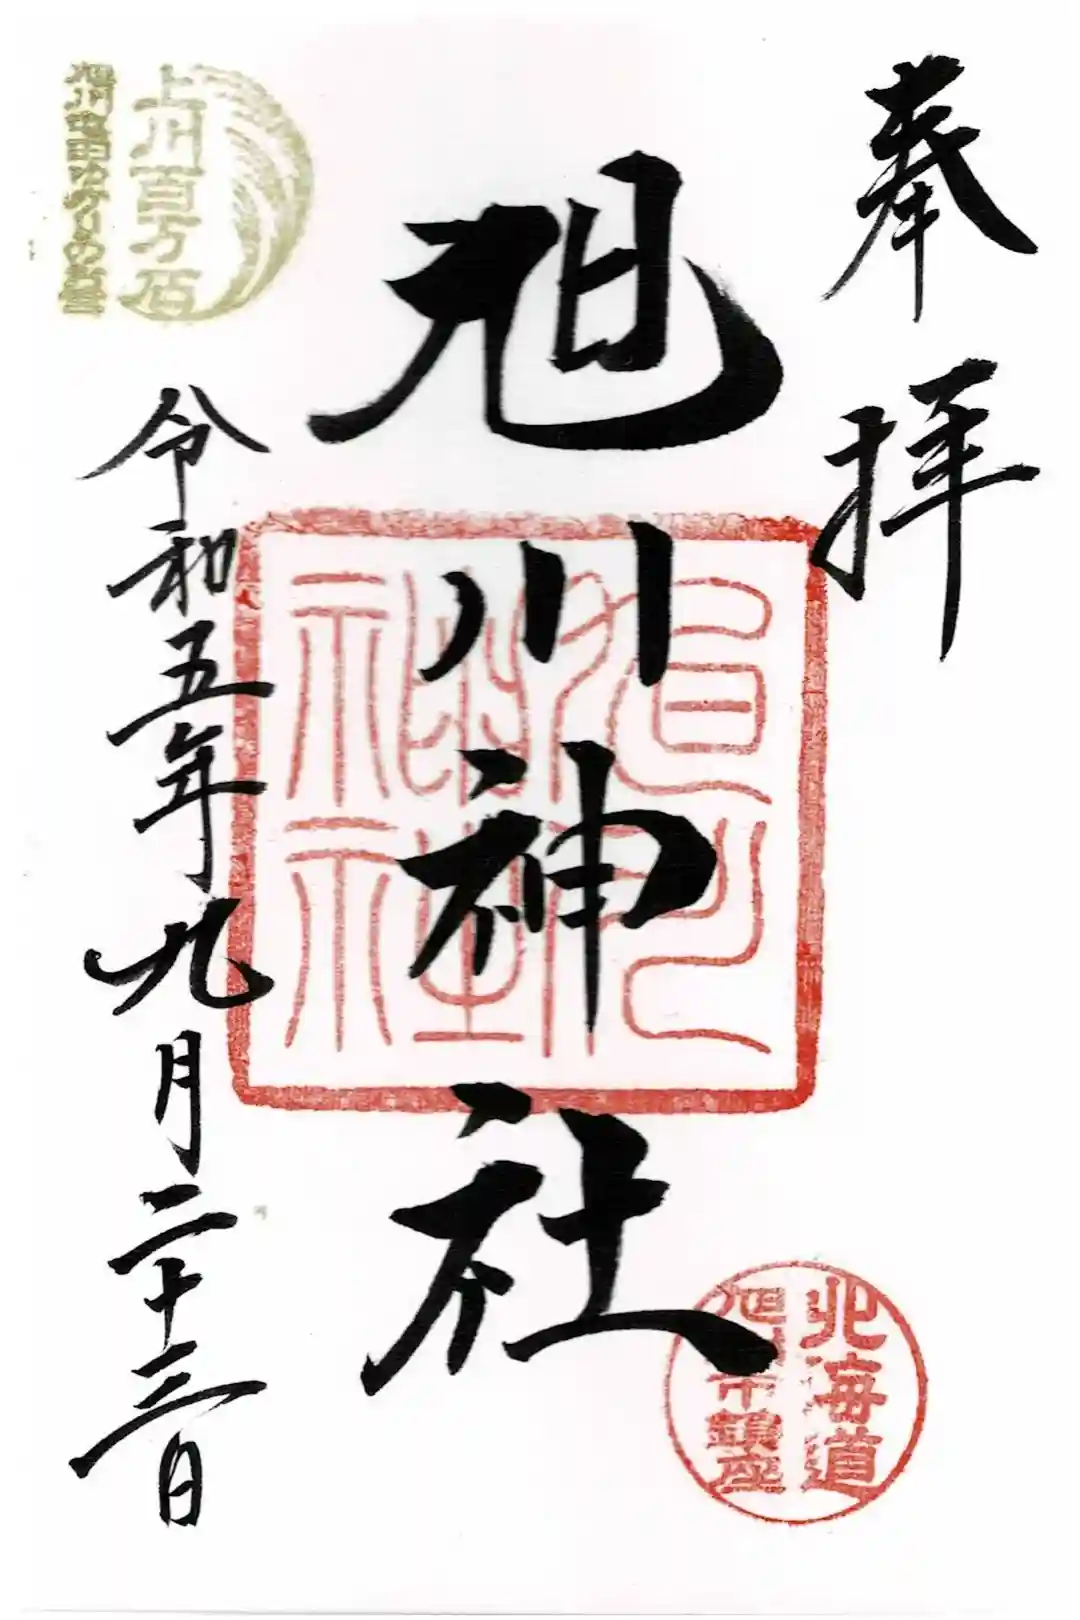 奉拝
旭川神社
旭川神社
北海道
旭川市鎮座
上川百万石
旭川稲田ゆかりの宮
令和五年九月二十三日